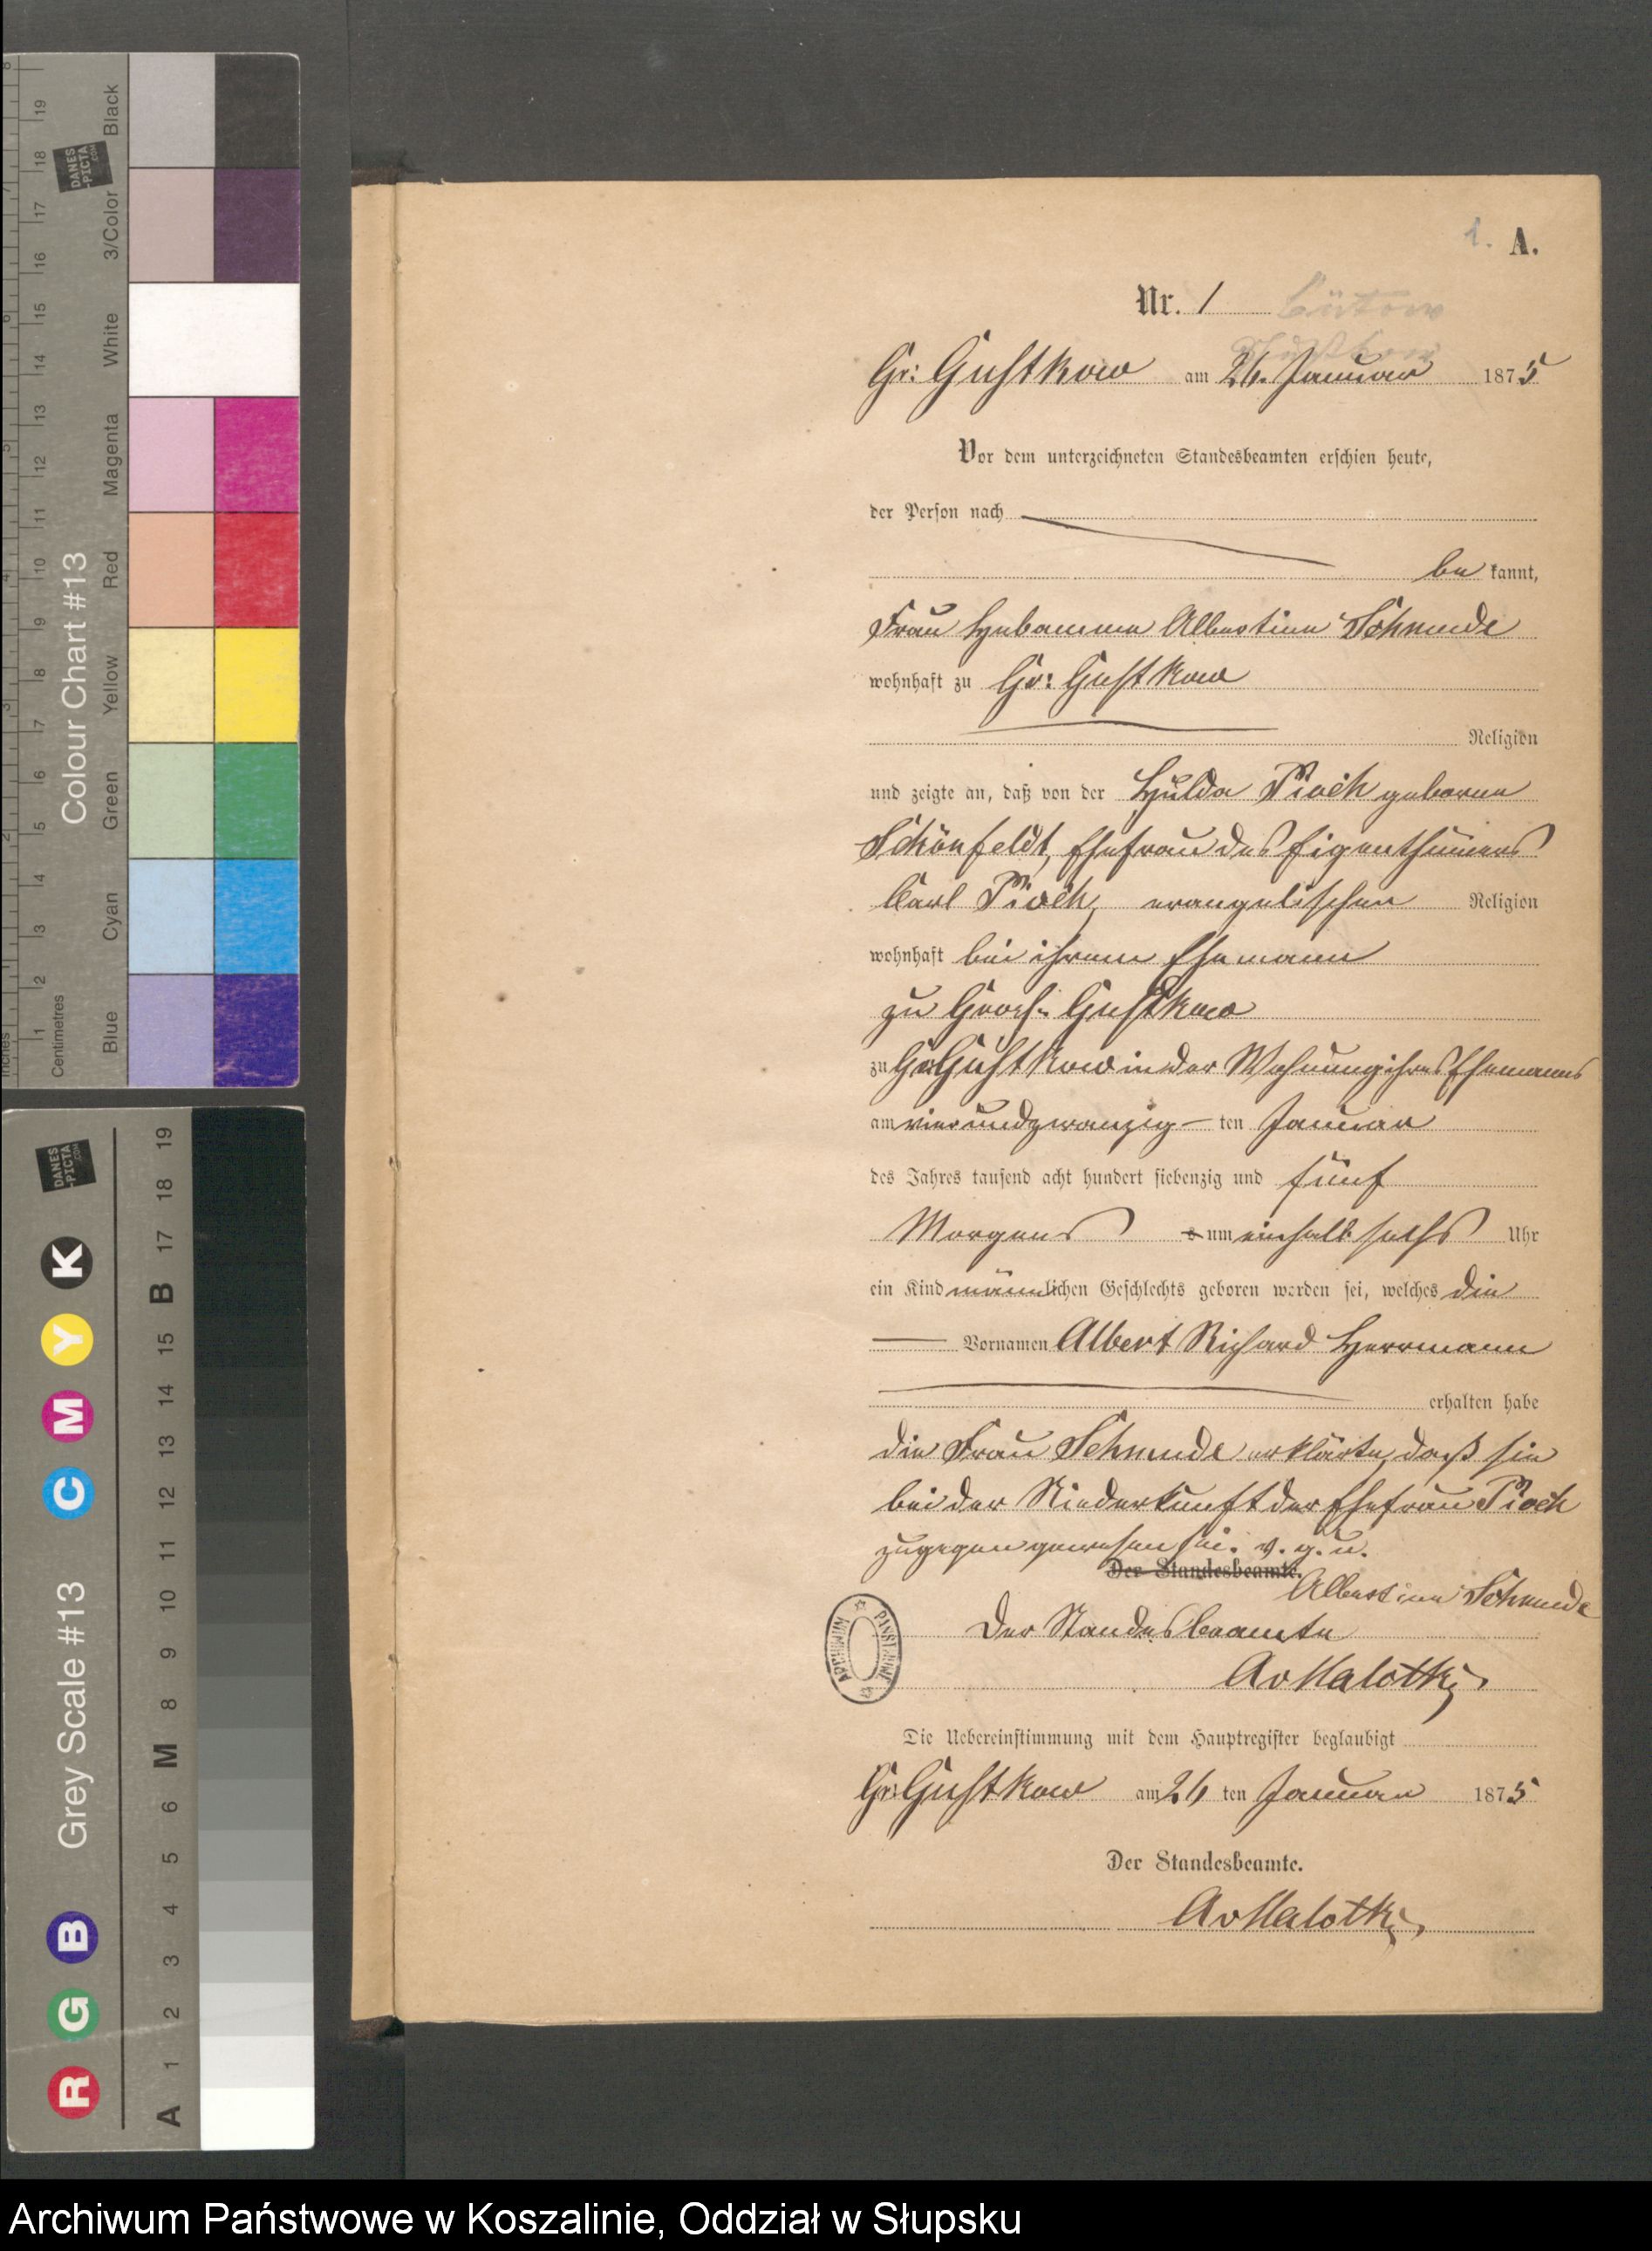 1. A.
Nr. 1 Bütow
Gr: Gustkow am 26. Januar 1875
Vor dem unterzeichneten Standesbeamten erschien heute,
der Person nach
be kannt,
Frau Hebamme Albertine Schmude
wohnhaft zu Gr: Gustkow
Religion
und zeigte an, daß von der Hulda Pioch geborene
Schönfeldt, Ehefrau des Eigenthümers
Carl Pioch, evangelischer Religion
wohnhaft bei ihrem Ehemann
zu Gross: Gustkow
zu Gr: Gustkow in der Wohnung ihres Ehemannes
am vierundzwanzig- ten Januar
des Jahres tausend acht hundert siebenzig und fünf
Morgens um einhalb sechs Uhr
ein Kind männlichen Geschlechts geboren worden sei, welches die
Vornamen Albert Richard Herrmann
erhalten habe
die Frau Schmude erklärte, daß sie
bei der Niederkunft der Ehefrau Pioch
zugegen gewesen sei. v. g. u.
Der Standesbeamte.
Albertine Schmude
Der Standesbeamte
AvMalottki
Die Uebereinstimmung mit dem Hauptregister beglaubigt
Gr: Gustkow am 26 ten Januar 1875
Der Standesbeamte.
AvMalottki
Colour Chart #13
Blue Cyan Green Yellow Red Magenta White 3/Color Black
Centimetres 1 2 3 4 5 6 7 8 9 10 11 12 13 14 15 16 17 18 19
Inches
DANES
-PICTA
.COM
Grey Scale #13
R G B C M Y K
A 1 2 3 4 5 6 M 8 9 10 11 12 13 14 15 B 17 18 19
DANES
-PICTA
.COM
Archiwum Państwowe w Koszalinie, Oddział w Słupsku